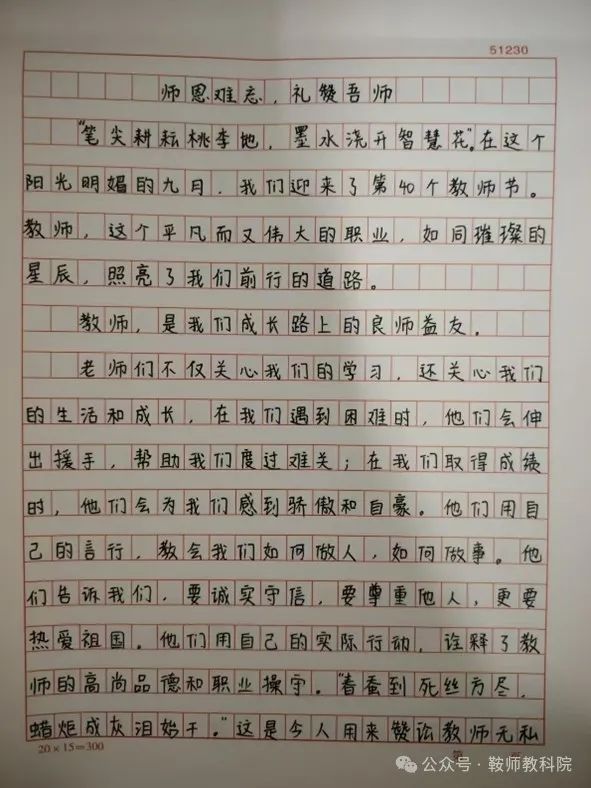 51230
师恩难忘，礼赞吾师
“笔尖耕耘桃李地，墨水浇开智慧花”。在这个
阳光明媚的九月，我们迎来了第40个教师节。
教师，这个平凡而又伟大的职业，如同璀璨的
星辰，照亮了我们前行的道路。
教师，是我们成长路上的良师益友。
老师们不仅关心我们的学习，还关心我们
的生活和成长，在我们遇到困难时，他们会伸
出援手，帮助我们度过难关；在我们取得成绩
时，他们会为我们感到骄傲和自豪。他们用自
己的言行，教会我们如何做人，如何做事。他
们告诉我们，要诚实守信，要尊重他人，更要
热爱祖国。他们用自己的实际行动，诠释了教
师的高尚品德和职业操守。“春蚕到死丝方尽，
蜡炬成灰泪始干。”这是今人用来赞讼教师无私
20×15=300
公众号·鞍师教科院